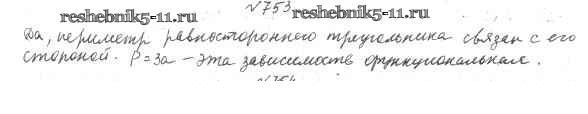 №753
reshebnik5-11.ru reshebnik5-11.ru
Да, периметр равностороннего треугольника связан с его
стороной. P=3a – эта зависимость функциональная.